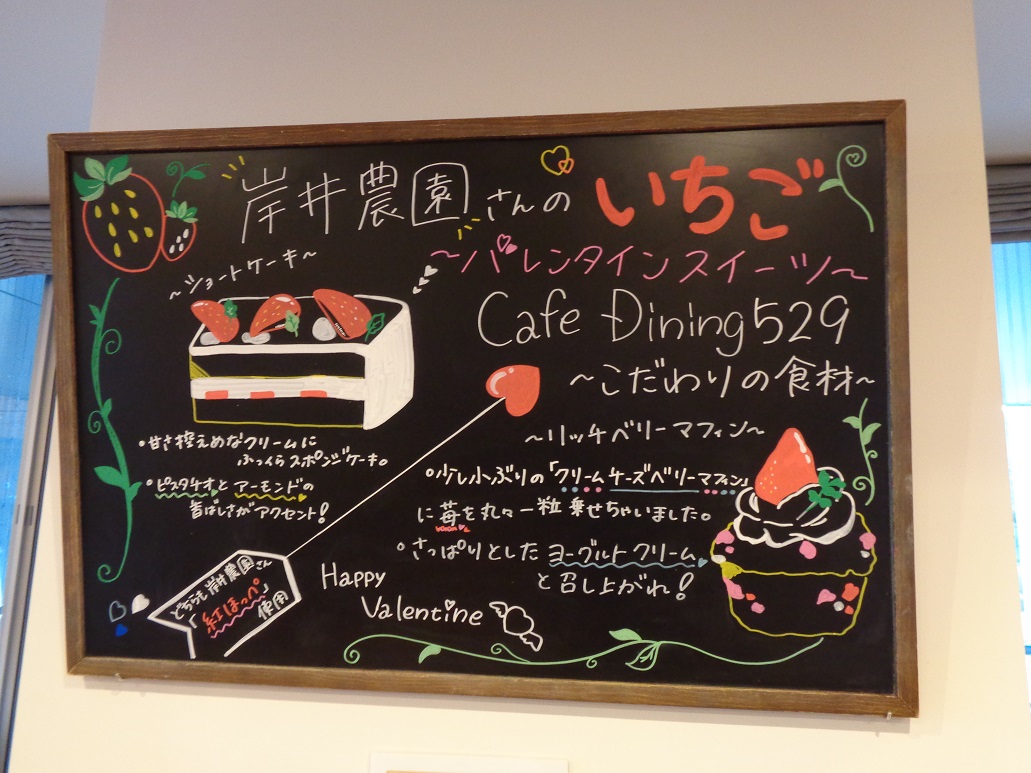 岸井農園さんの いちご
～バレンタインスイーツ～
Cafe Dining529
～こだわりの食材～
～ショートケーキ～
•甘さ控えめなクリームに
ふっくらスポンジケーキ。
•ピスタチオとアーモンドの
香ばしさがアクセント!
～リッチベリーマフィン～
•少し小ぶりの「クリームチーズベリーマフィン」
に苺を丸々一粒乗せちゃいました。
•さっぱりとしたヨーグルトクリーム
と召し上がれ!
どちらも岸井農園さん
「紅ほっぺ」
使用
Happy
Valentine